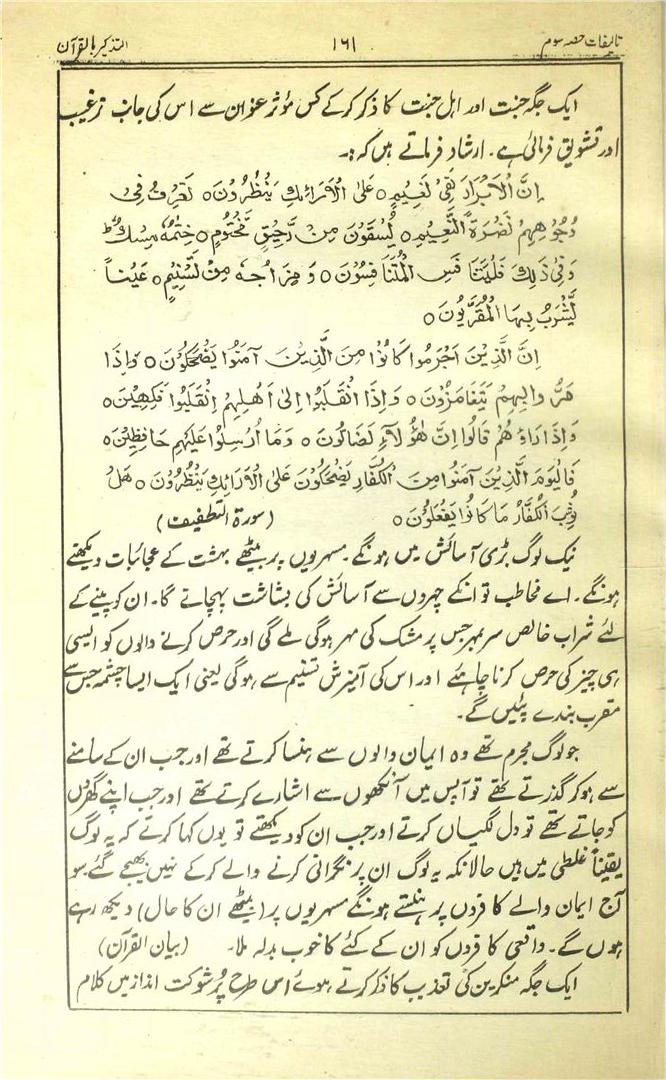 تالیفات حصہ سوم
۱۶۱
التذکیر بالقرآن
ایک جگہ جنت اور اہل جنت کا ذکر کرکے کس مؤثر عنوان سے اس کی جانب ترغیب
اور تشویق فرمائی ہے۔ ارشاد فرماتے ہیں کہ:۔
اِنَّ الْاَبْرَارَ لَفِیْ نَعِیْمٍ ○ عَلَی الْاَرَائِكِ یَنْظُرُوْنَ ○ تَعْرِفُ فِیْ
وُجُوْهِهِمْ نَضْرَةَ النَّعِیْمِ ○ یُسْقَوْنَ مِنْ رَّحِیْقٍ مَّخْتُوْمٍ ○ خِتٰمُهٗ مِسْكٌ ط
وَفِیْ ذٰلِكَ فَلْیَتَنَا فَسِ الْمُتَنَا فِسُوْنَ ○ وَ مِزَاجُهٗ مِنْ تَسْنِیْمٍ ○ عَیْناً
یَّشْرَبُ بِهَا الْمُقَرَّبُوْنَ ○
اِنَّ الَّذِیْنَ اَجْرَمُوا كَانُوْا مِنَ الَّذِیْنَ آمَنُوْا یَضْحَكُوْنَ ○ وَاِذَا
مَرُّ وا بِهِمْ یَتَغَامَزُوْنَ ○ وَاِذَا انْقَلَبُوْا اِلٰی اَهْلِهِمُ انْقَلَبُوْا فَكِهِیْنَ ○
وَ اِذَا رَاَوْ هُمْ قَالُوْا اِنَّ هٰؤُ لَآءِ لَضَالُّوْنَ ○ وَمَا اُرْسِلُوْا عَلَیْهِمْ حَافِظِیْنَ ○
فَالْیَوْمَ الَّذِیْنَ آمَنُوْا مِنَ الْكُفَّارِ یَضْحَكُوْنَ عَلَی الْاَرَائِكِ یَنْظُرُوْنَ ○ هَلْ
ثُوِّبَ الْكُفَّارُ مَا كَا نُوْا یَفْعَلُوْنَ ○ (سورۃ التطفیف)
نیک لوگ بڑی آسائش میں ہونگے۔ مسہریوں پر بیٹھے بہشت کے عجائبات دیکھتے
ہونگے۔ اے مخاطب تو انکے چہروں سے آسائش کی بشاشت پہچانے گا۔ ان کو پینے کے
لئے شراب خالص سر بمہر جس پر مشک کی مہر ہوگی ملے گی اور حرص کرنے والوں کو ایسی
ہی چیز کی حرص کرنا چاہئے اور اس کی آمیزش تسنیم سے ہوگی یعنی ایک ایسا چشمہ جس سے
مقرب بندے پئیں گے۔
جو لوگ مجرم تھے وہ ایمان والوں سے ہنسا کرتے تھے اور جب ان کے سامنے
سے ہو کر گذرتے تھے تو آپس میں آنکھوں سے اشارے کرتے تھے اور جب اپنے گھروں
کو جاتے تھے تو دل لگیاں کرتے اور جب ان کو دیکھتے تو یوں کہا کرتے کہ یہ لوگ
یقیناً غلطی میں ہیں حالانکہ یہ لوگ ان پر نگرانی کرنے والے کرکے نہیں بھیجے گئے۔ سو
آج ایمان والے کافروں پر ہنستے ہونگے مسہریوں پر (بیٹھے ان کا حال) دیکھ رہے
ہوں گے۔ واقعی کافروں کو ان کے کئے کا خوب بدلہ ملا۔ (بیان القرآن)
ایک جگہ منکرین کی تعذیب کا ذکر کرتے ہوئے اس طرح پُر شوکت انداز میں کلام